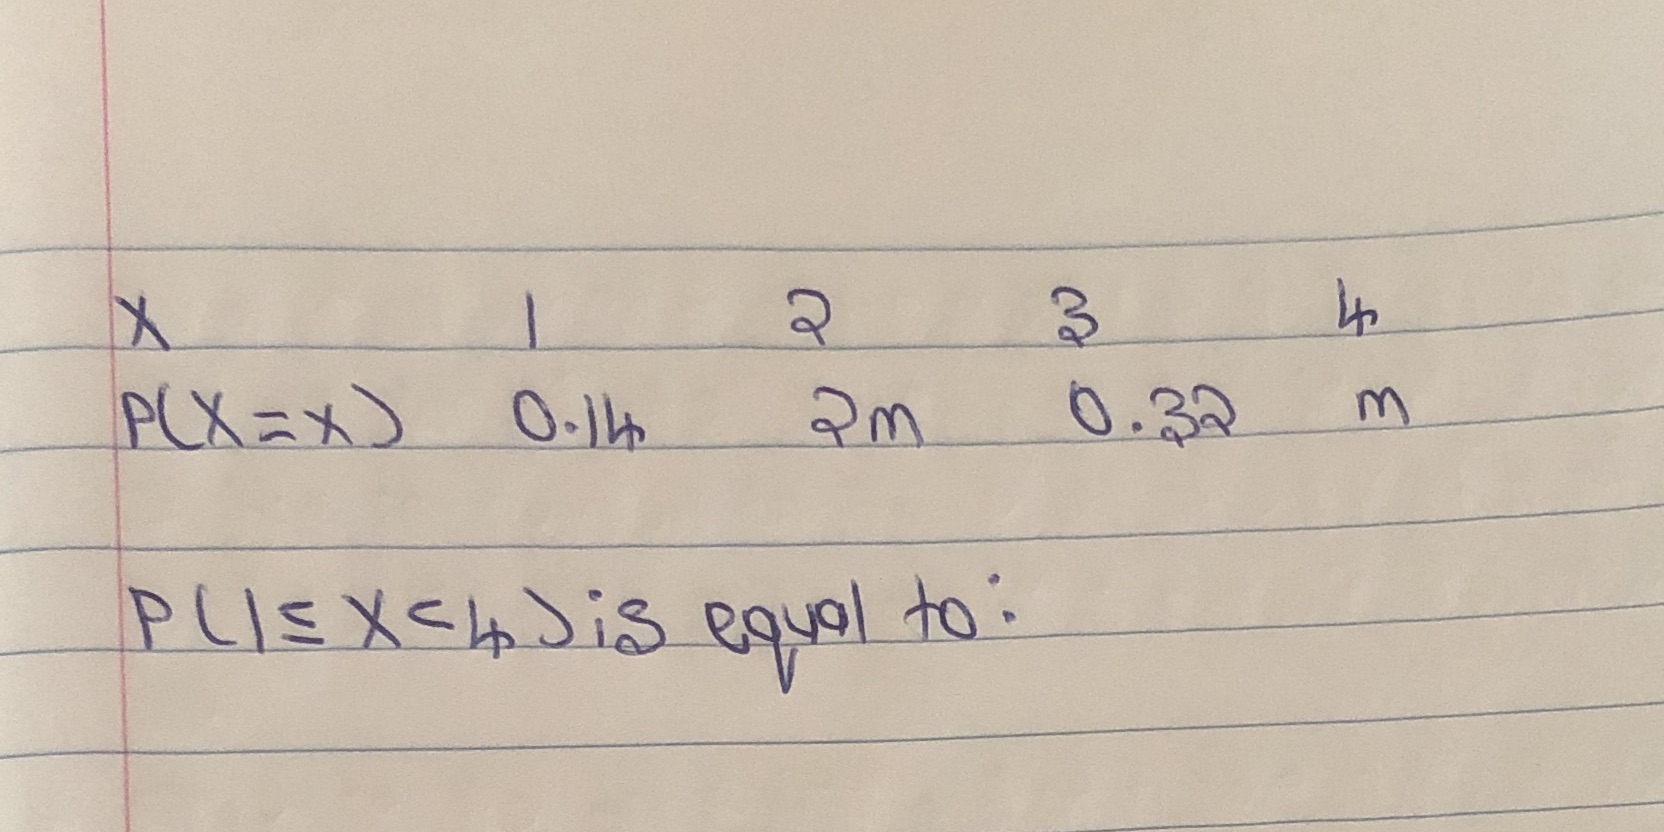 X 1 2 3 4
P(X=x) 0.14 2m 0.32 m
P(1≤X<4) is equal to: